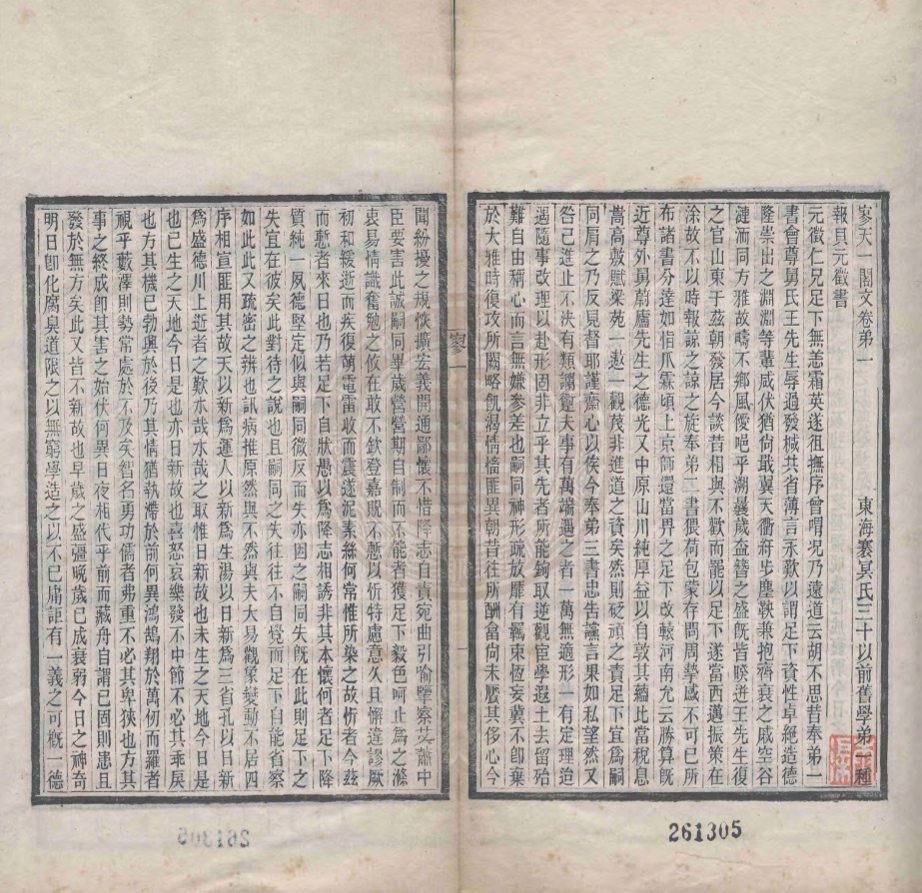 寥天一閣文卷弟一
東海褰冥氏三十以前舊學弟一種
報貝元徵書
元徵仁兄足下無恙霜英遂徂撫序曾喟况乃遠道云胡不思昔奉弟一
書會尊舅氏王先生辱過發椷共省薄言永歎以謂足下資性卓絕造德
隆崇出之淵淵等輩咸伏猶尙戢翼天衢紆步塵鞅兼抱齊衰之戚空谷
漣洏同方雅故疇不鄉風僾唈乎溯曩歲盍簪之盛旣皆睽迸王先生復
之官山東于茲朝發居今談昔相與不歡而罷以足下遂當西邁振策在
涂故不以時報諒之諒之旌奉弟二書猥荷包蒙存問周摯感不可已所
布諸書分達如指爪霱頃上京師還當畀之足下改轅河南允云勝算旣
近尊外舅蔚廬先生之德光又中原山川純厚益以自敦其蘊比當稅息
嵩高敷賦梁苑一遊一觀茂非進道之資矣然則砭頑之責足下宜爲嗣
同屑之乃反見督耶謹齋心以俟今奉弟三書忠告讜言果如私望然又
咎己進止不決有類讇寱夫事有萬端遇之者一萬無適形一有定理迨
遇隨事改理以赴形固非立乎其先者所能鉤取逆觀宦學遐土去留殆
難自由稱心而言無嫌參差也嗣同神形疏放靡有羈束恆妄冀不卽棄
於大雅時復攻所闕略飢渴情愫匪異朝昔往所酬畣尙未饜其心今
寥一
一
聞紛擾之規恢擴宏義開通鄙懷不惜降志自貢宛曲引喻壐察艾蕭中
臣要害此誠嗣同畢歲營營期自制而不能者獲足下毅色呵止爲之滌
衷易情識奮勉之攸在敢不欽登嘉貺不憗以忻特慮意久且懈違謬厥
初和緩逝而疾復萌電雷收而震遂泥素絲何常惟所染之故忻者今茲
而慙者來日也乃若足下自狀愚以爲降志相誘非其本懷何者足下降
質純一夙德堅定似與嗣同微反而失亦因之嗣同失旣在此則足下之
失宜在彼矣此對待之說也且嗣同之失往往不自覺而足下自能省察
如此此又疏密之辨也訊病推原然與不然與夫大易觀象變動不居四
序相宣匪用其故天以新爲運人以新爲生湯以日新爲三省孔以日新
爲盛德川上逝者之歎水哉水哉之取惟日新故也未生之天地今日是
也已生之天地今日是也亦日新故也喜怒哀樂發不中節不必其乖戾
也方其機已勃興於後乃其情猶執滯於前何異鴻鵠翔於萬仞而羅者
視乎藪澤則勢常處於不及矣智名勇功儒者弗重不必其卑狹也方其
事之終成卽其害之始伏何異日夜相代乎前而藏舟自謂已固則患且
發於無方矣此又皆不新故也早歲之盛彊晼歲已成衰弱今日之神奇
明日卽化腐臭道限之以無窮學造之以不已庸詎有一義之可槪一德
261305